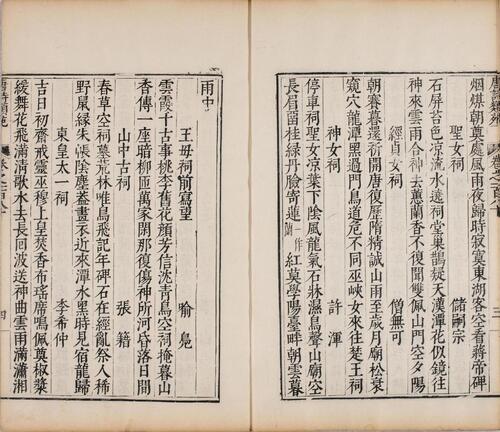 烟煤朝奠處風雨夜歸時寂寞東湖客空看蔣帝碑
聖女祠
儲嗣宗
石屏苔色凉流水遶祠堂巢鵲疑天漢潭花似鏡粧
神來雲雨合神去蕙蘭香不復聞雙佩山門空夕陽
經貞女祠
僧無可
朝賽暮還祈開唐復歷隋精誠山雨至歲月廟松衰
窺穴龍潭黑過門鳥道危不同巫峽女來往楚王祠
神女祠
許渾
停車祠聖女凉葉下陰風龍氣石牀濕鳥聲山廟空
長眉留桂綠丹臉寄蓮一作蘭紅莫學陽臺畔朝雲暮
雨中
王母祠前寫望
喻凫
雲霞千古事桃李舊花顔芳信沈青鳥空祠掩暮山
香傳一座暗柳匝萬家閑那復傷神所河昏落日間
山中古祠
張籍
春草空祠墓荒林唯鳥飛記年碑石在經亂祭人稀
野鼠緣朱帳陰塵蓋畫衣近來潭水黑時見宿龍歸
東皇太一祠
李希仲
吉日初齋戒靈巫穆上皇焚香布瑤席鳴佩奠椒漿
緩舞花飛滿清歌水去長回波送神曲雲雨滿瀟湘
三
四